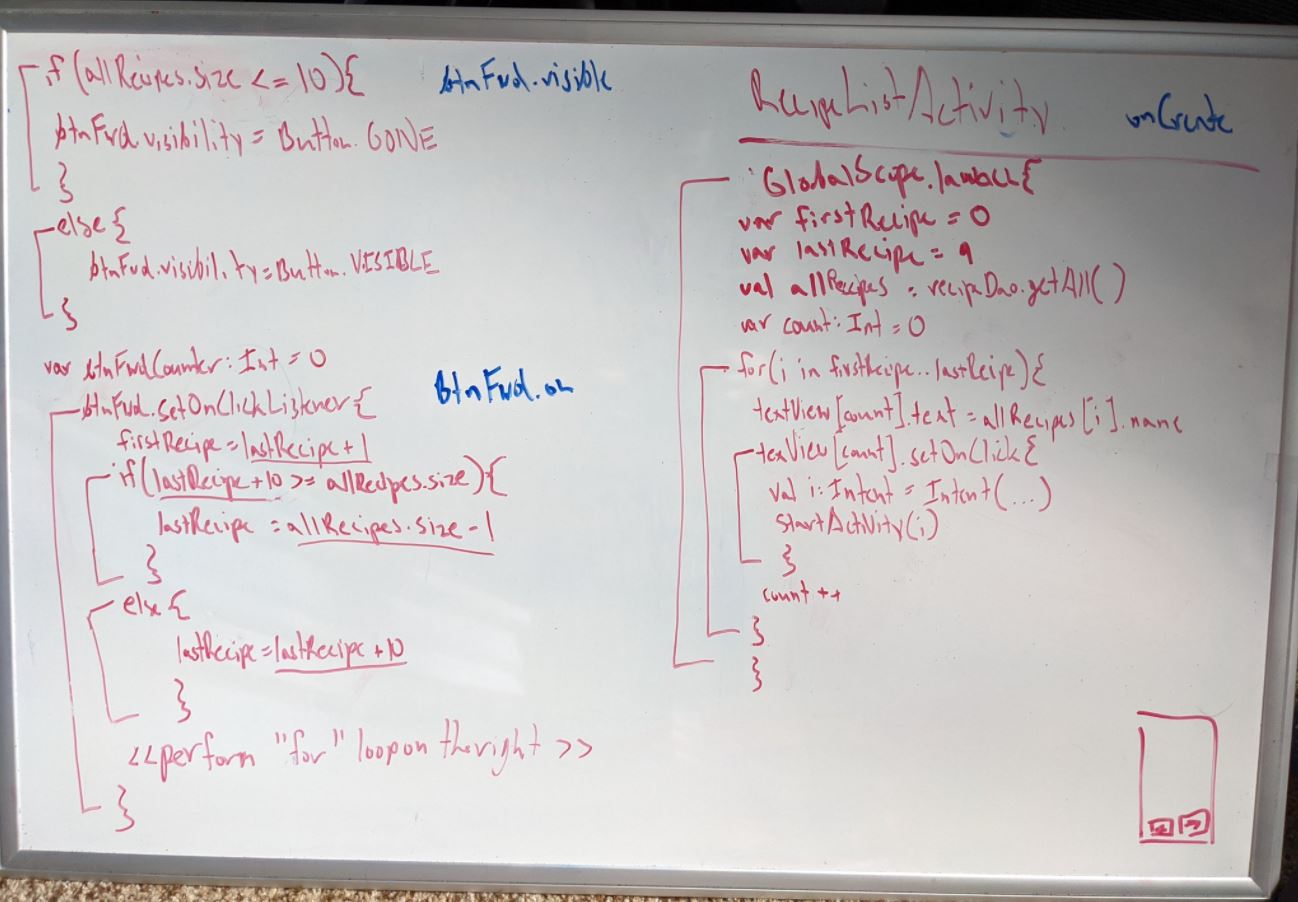 if(allRecipes.size <= 10){
btnFwd.visible
btnFwd.visibility = Button.GONE
}
else{
btnFwd.visibility = Button.VISIBLE
}
var btnFwdCounter: Int = 0
btnFwd.setOnClickListener{
btnFwd.on
firstRecipe = lastRecipe + 1
if(lastRecipe + 10 >= allRecipes.size){
lastRecipe = allRecipes.size - 1
}
else{
lastRecipe = lastRecipe + 10
}
<<perform "for" loop on the right >>
}
RecipeListActivity
onCreate
GlobalScope.launch{
var firstRecipe = 0
var lastRecipe = 9
val allRecipes = recipeDao.getAll()
var count: Int = 0
for(i in firstRecipe..lastRecipe){
textView[count].text = allRecipes[i].name
texView[count].setOnClick{
val i: Intent = Intent(...)
startActivity(i)
}
count ++
}
}